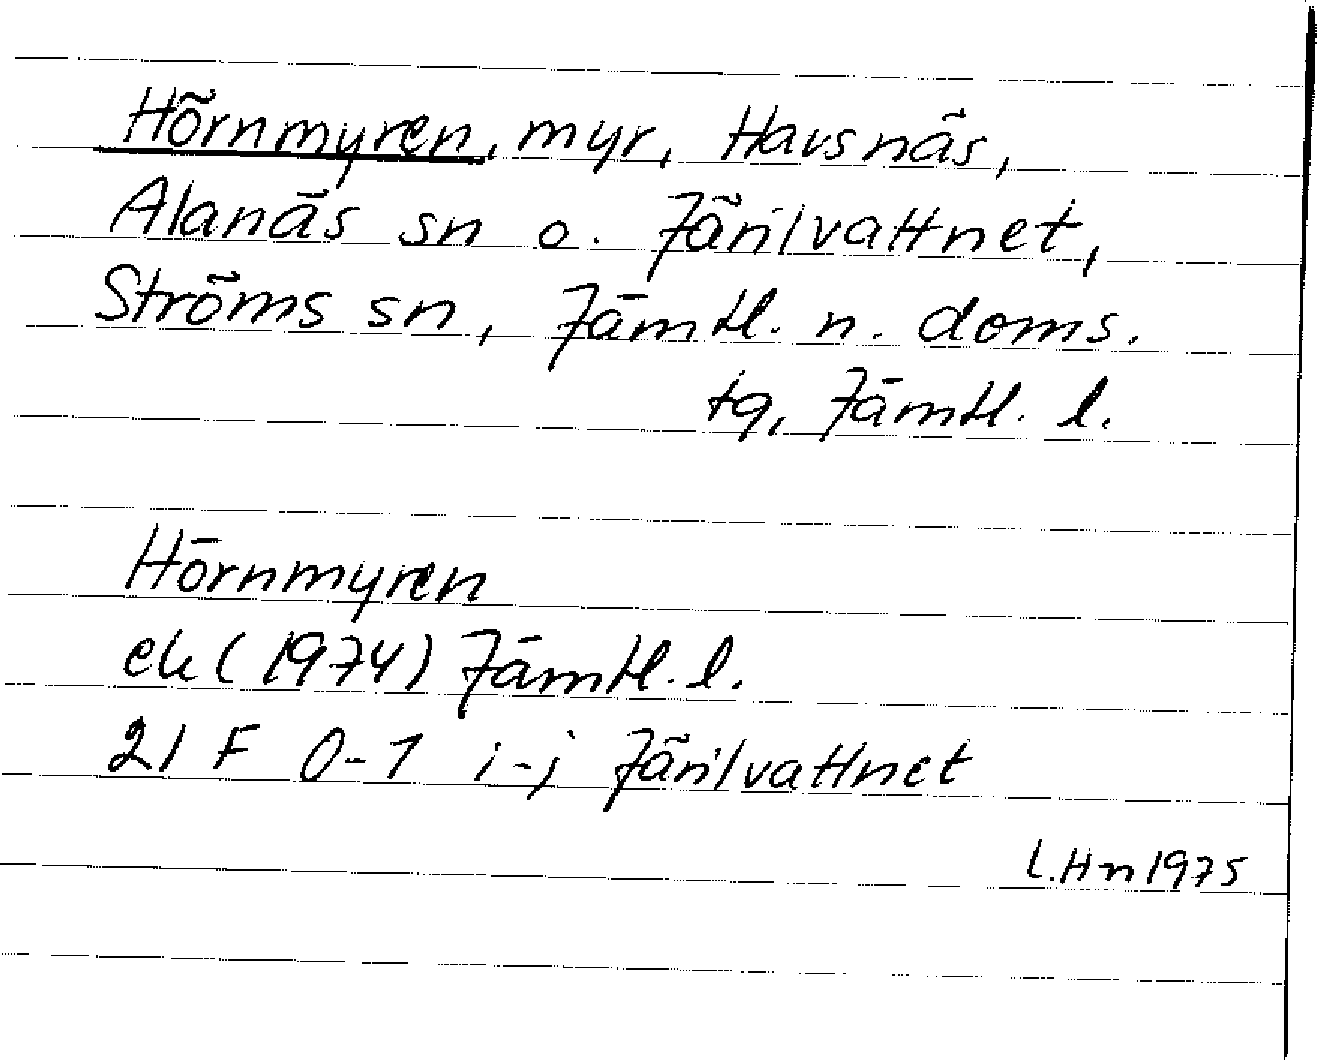 Hörnmyren, myr, Havsnäs,
Alanäs sn o. Järilvattnet,
Ströms sn, Jämtl. n. doms.
tg, Jämtl. l.
Hörnmyren
ek (1974) Jämtl. l.
21 F 0-1 i-j Järilvattnet
L.Hn 1975